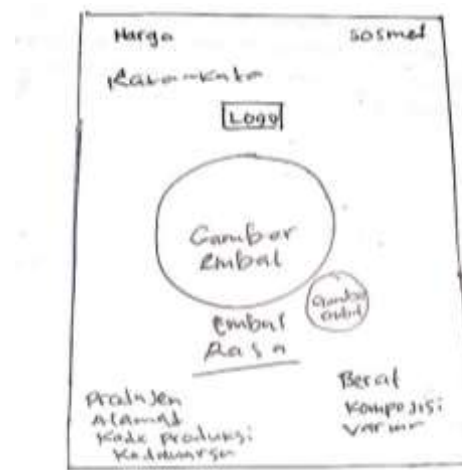 Harga
sosmed
Kata-Kata
Logo
Gambar
embal
Gambar
embal
embal
Rasa
Produsen
Alamat
Kode produksi
Kadaluarsa
Berat
Komposisi
Varian